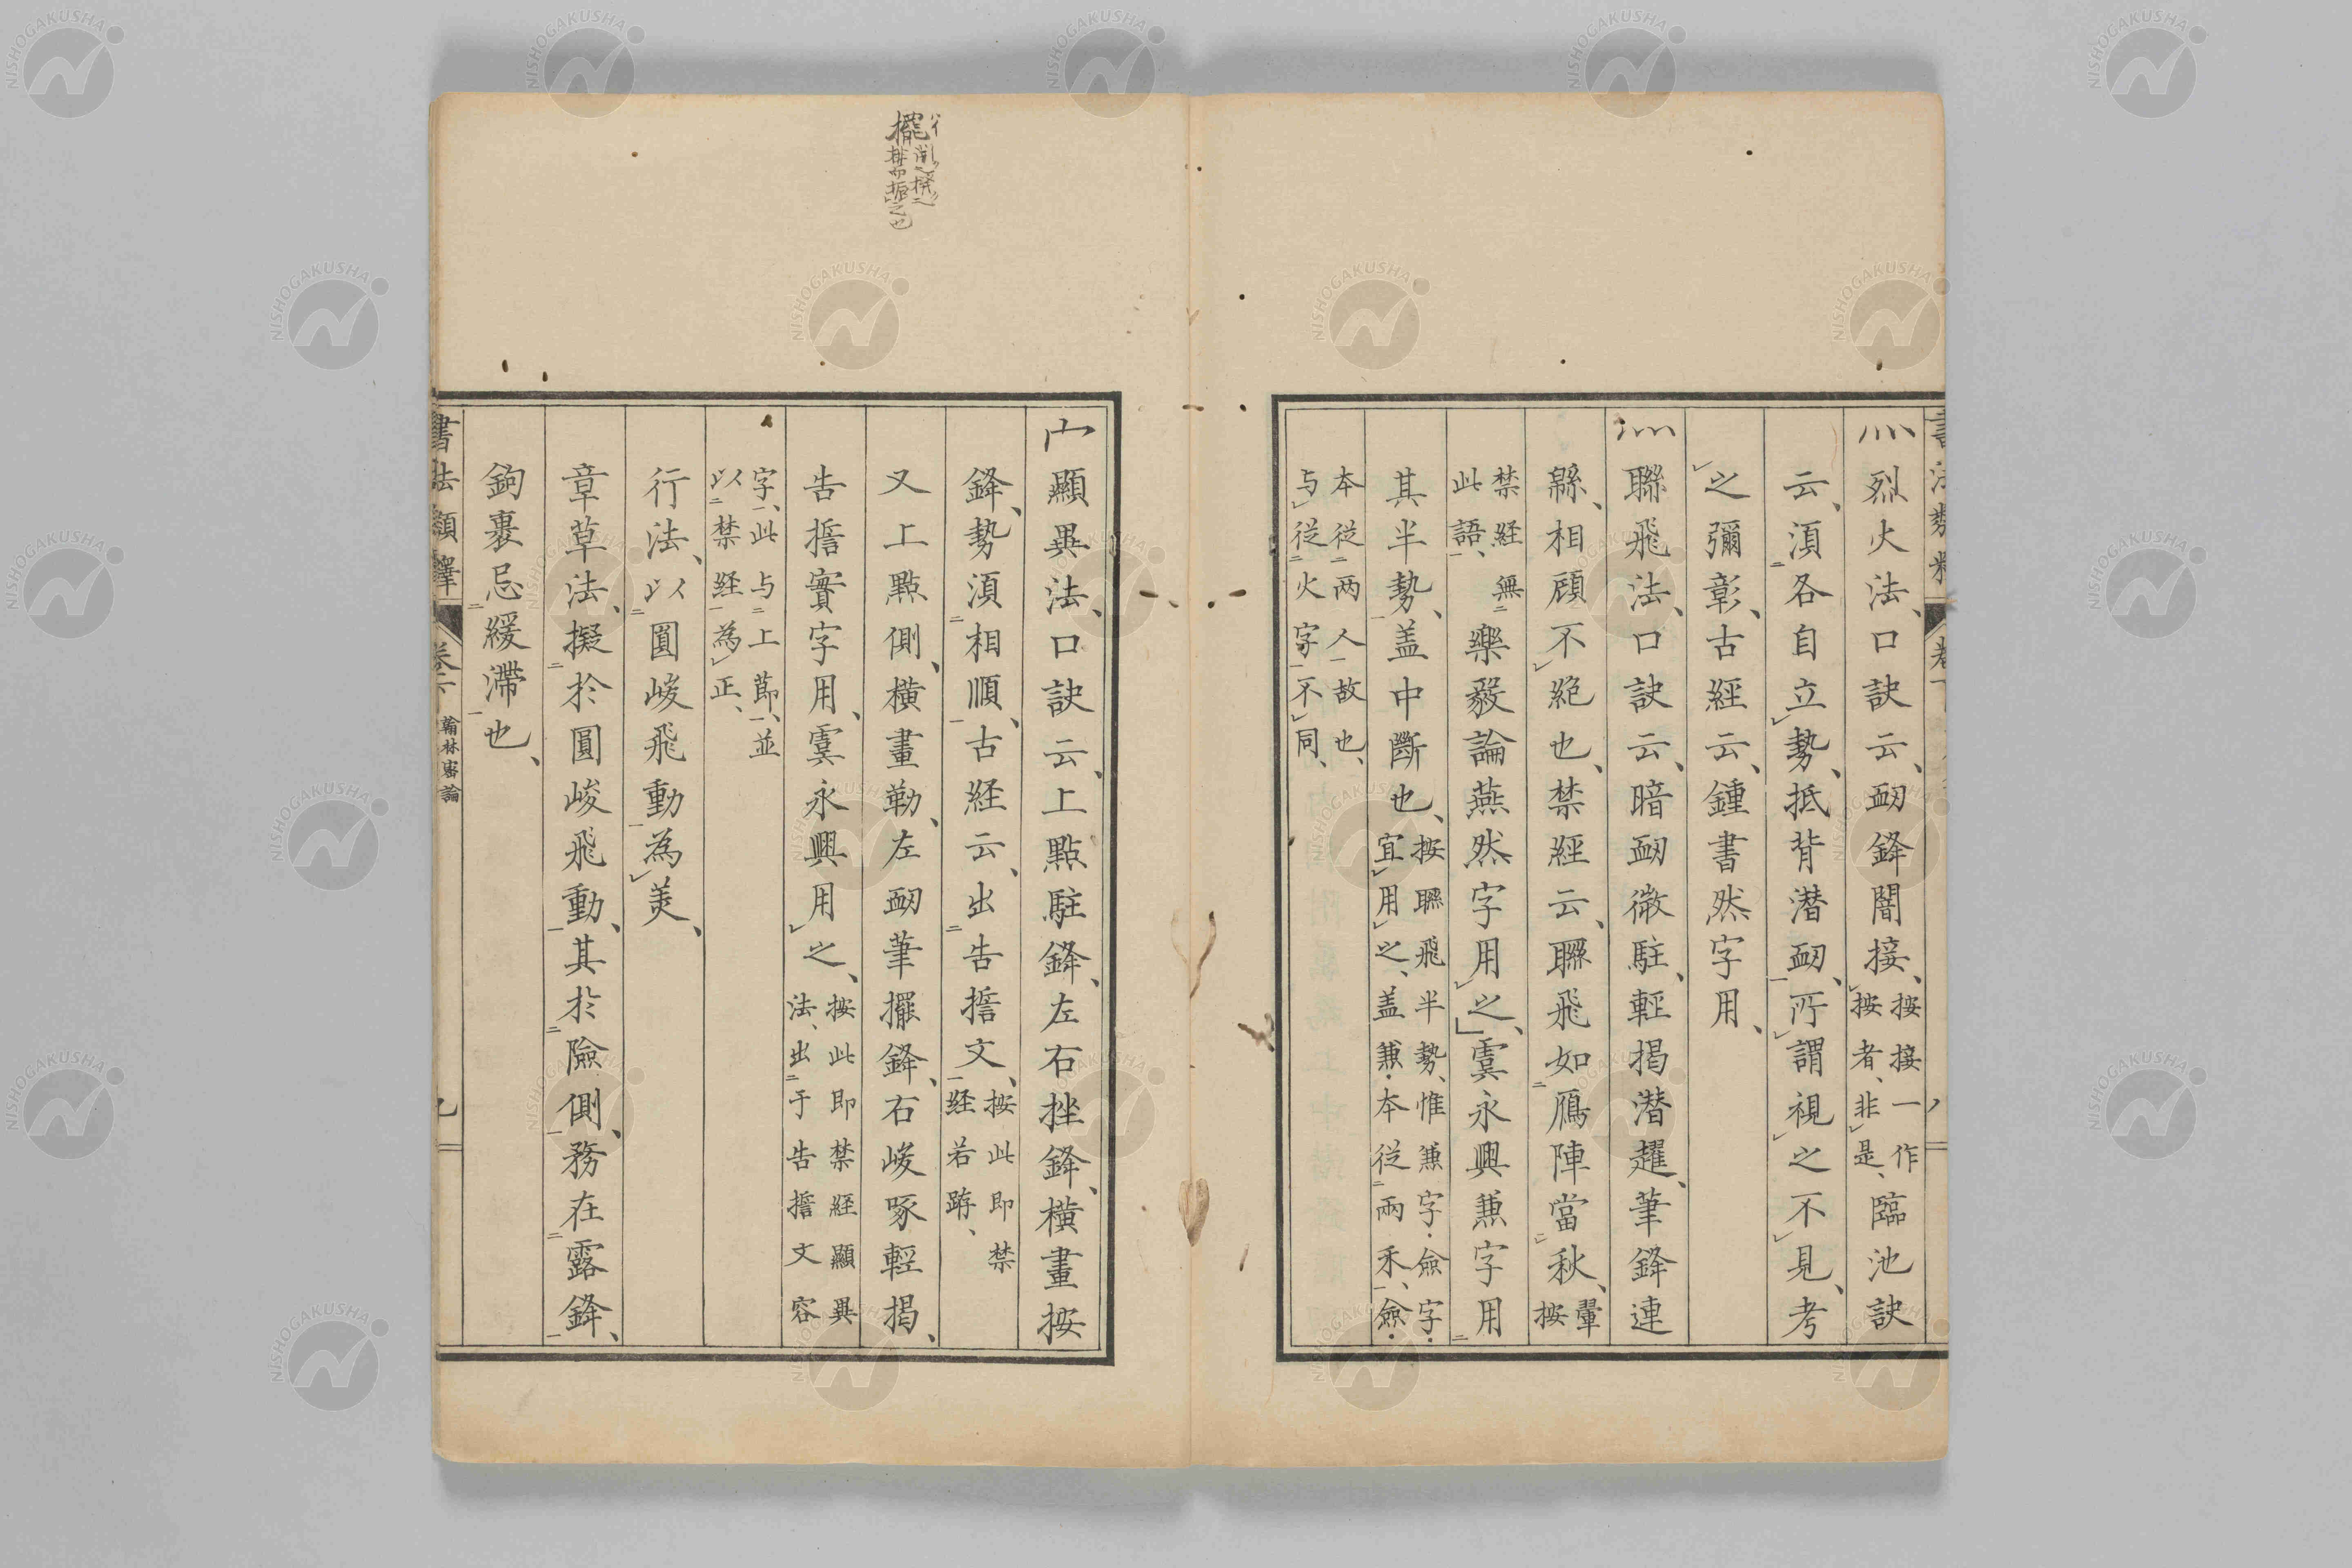 灬烈火法、口訣云、衄鋒闇接、按接一作按者、非是、臨池訣
云、須各自立勢、抵背潜衄、所謂視之不見、考
之彌彰、古經云、鍾書然字用、
聯飛法、口訣云、暗衄微駐、輕揭潜趯、筆鋒連
緜、相顧不絶也、禁經云、聯飛如鴈陣當秋、按鞏
禁経無此語、樂毅論燕然字用之、虞永興𠔥字用
其半勢、盖中斷也、按聯飛半勢、惟𠔥字僉字宜用之、盖𠔥本従兩禾、僉
本従両人故也、与従火字不同、
顯異法、口訣云、上點駐鋒、左右挫鋒、橫畫按
鋒、勢須相順、古経云、出告誓文、按此即禁経若蹐、
又上點側、橫畫勒、左衄筆擺鋒、右峻啄輕揭、
告誓實字用、虞永興用之、按此即禁経顯異法、出于告誓文容
字、此与上莭、並以禁経為正、
行法、以圓峻飛動為美、
章草法、擬於圓峻飛動、其於險側、務在露鋒、
鉤裹忌緩滯也、
書法類釋
翰林密論